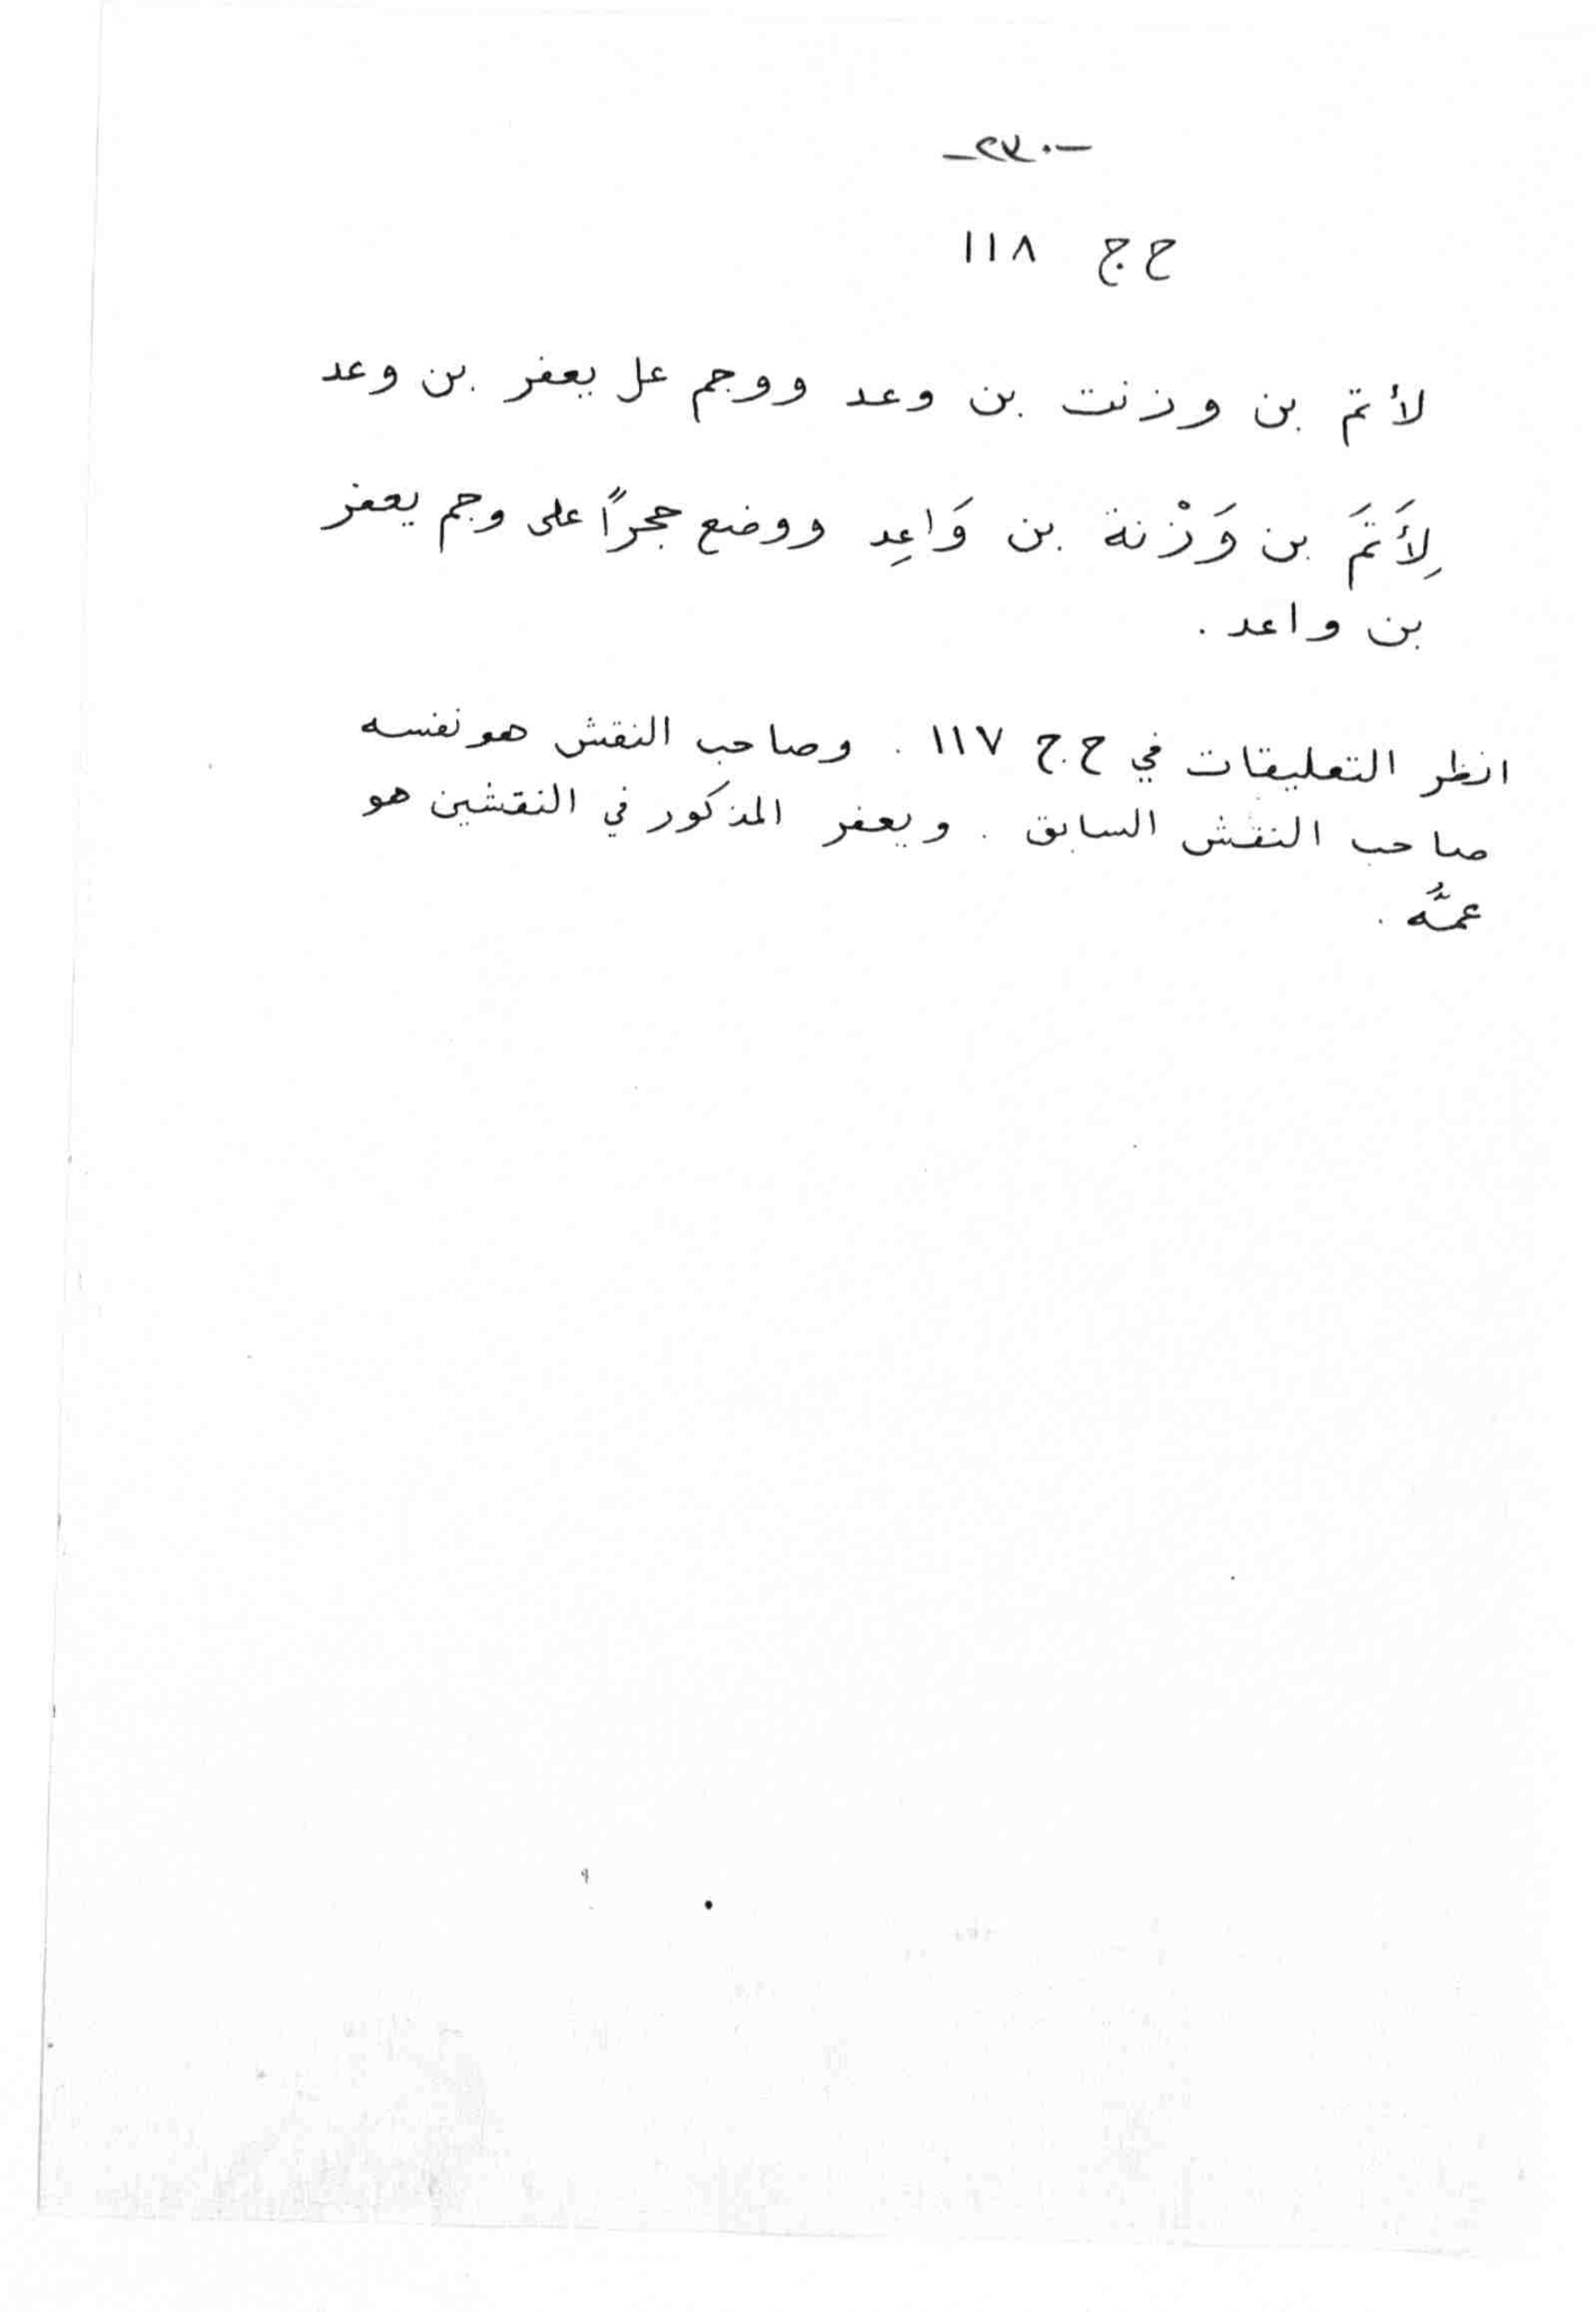 -٢٣٠-
ح ج ١١٨
لأتم بن وزنت بن وعد ووجم عل يعفر بن وعد
لِأَتَمَ بن وَزْنة بن وَاعِد ووضع حجراً على وجم يعفر
بن واعد .
انظر التعليقات في ح ج ١١٧ . وصاحب النقش هو نفسه
صاحب النقش السابق . ويعفر المذكور في النقشين هو
عمُّه .